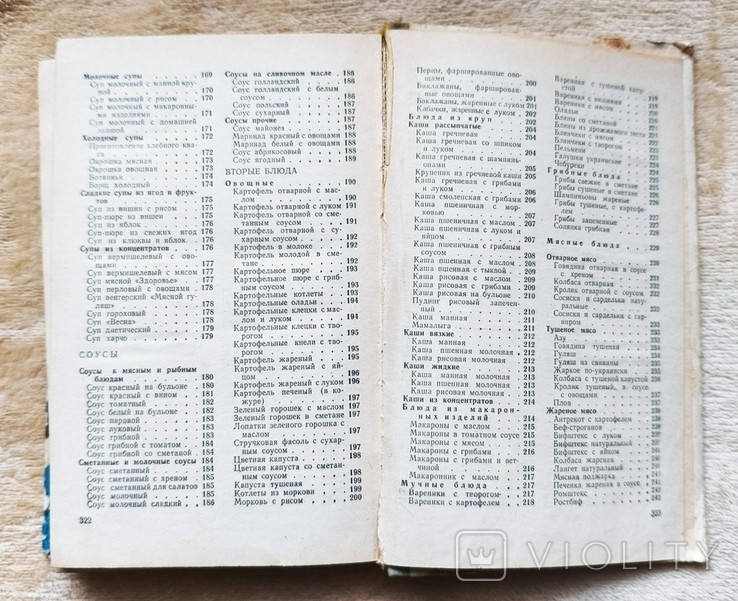 Молочные супы . . . . . 169
Суп молочный с манной кру-
пой . . . . . 170
Суп молочный с рисом . . 170
Суп молочный с макаронны-
ми изделиями . . . . 171
Суп молочный с домашней
лапшой . . . . . 171
Холодные супы . . . . . 172
Приготовление хлебного ква-
са . . . . . 172
Окрошка мясная . . . . 173
Окрошка овощная . . . . 174
Ботвинья . . . . . 174
Борщ холодный . . . . 174
Сладкие супы из ягод и фрук-
тов . . . . . 175
Суп из вишен с рисом . . 175
Суп-пюре из вишен . . . 175
Суп из яблок . . . . 176
Суп-пюре из свежих ягод 176
Суп из клюквы и яблок . . 176
Супы из концентратов . . . 177
Суп вермишелевый с ово-
щами . . . . . 177
Суп вермишелевый с мясом 177
Суп мясной «Здоровье» . . 177
Суп перловый с овощами 178
Суп венгерский «Мясной гу-
ляш» . . . . . 178
Суп гороховый . . . . 178
Суп «Весна» . . . . 178
Суп диетический . . . . 179
Суп харчо . . . . . 179
СОУСЫ
Соусы к мясным и рыбным
блюдам . . . . . 180
Соус красный на бульоне . 180
Соус красный с вином . . 181
Соус томатный . . . . 181
Соус белый на бульоне . . 182
Соус паровой . . . . 182
Соус луковый . . . . 183
Соус грибной . . . . 183
Соус грибной с томатом . . 184
Соус грибной со сметаной 184
Сметанные и молочные соусы 184
Соус сметанный . . . . 184
Соус сметанный с хреном 185
Соус сметанный для салатов 185
Соус молочный . . . . 185
Соус молочный сладкий . . 186
322
Соусы на сливочном масле . 186
Соус голландский . . . 186
Соус голландский с белым
соусом . . . . . 187
Соус польский . . . . 187
Соус сухарный . . . . 187
Соусы прочие . . . . . 187
Соус майонез . . . . 187
Маринад красный с овощами 188
Маринад белый с овощами 188
Соус абрикосовый . . . 188
Соус ягодный . . . . 189
ВТОРЫЕ БЛЮДА
Овощные . . . . . 190
Картофель отварной с мас-
лом . . . . . 190
Картофель отварной с луком 191
Картофель отварной со сме-
танным соусом . . . . 191
Картофель отварной с су-
харным соусом . . . . 191
Картофель в молоке . . . 192
Картофель молодой в сме-
тане . . . . . 192
Картофельное пюре . . . 193
Картофельное пюре с гриб-
ным соусом . . . . . 193
Картофельные котлеты . . 194
Картофельные оладьи . . 194
Картофельные клецки с мас-
лом и луком . . . . 194
Картофельные клецки с тво-
рогом . . . . . 195
Картофельные кнели с тво-
рогом . . . . . 195
Картофель жареный . . . 196
Картофель жареный с яй-
цом . . . . . 196
Картофель жареный с луком 196
Картофель печеный (в ко-
журе) . . . . . 197
Зеленый горошек с маслом 197
Зеленый горошек в сметане 197
Лопатки зеленого горошка с
маслом . . . . . 197
Стручковая фасоль с сухар-
ным соусом . . . . . 198
Цветная капуста . . . . 198
Цветная капуста со сметан-
ным соусом . . . . . 198
Капуста тушеная . . . . 199
Котлеты из моркови . . . 199
Морковь с рисом . . . . 200
Перцы, фаршированные ово-
щами . . . . . 200
Баклажаны, фаршированные
овощами . . . . . 201
Баклажаны, жаренные с луком 201
Кабачки, жаренные с луком . 202
Блюда из круп . . . . 202
Каши рассыпчатые . . . . 204
Каша гречневая . . . . 204
Каша гречневая со шпиком
и луком . . . . . 204
Каша гречневая с шампинь-
онами . . . . . 205
Крупеник из гречневой каши 205
Каша гречневая с грибами
и луком . . . . . 206
Каша смоленская с грибами 206
Каша пшеничная с мор-
ковью . . . . . 207
Каша пшеничная с маслом . 207
Каша пшеничная с луком и
яйцом . . . . . 207
Каша пшеничная с грибным
соусом . . . . . 208
Каша пшенная с маслом . 208
Каша пшенная с тыквой . . 208
Каша рисовая с маслом . . 209
Каша рисовая с грибами . . 210
Каша рисовая на бульоне . 210
Пудинг рисовый запечен-
ный . . . . . 211
Каша манная . . . . 211
Мамалыга . . . . . 211
Каши вязкие . . . . . 212
Каша манная молочная . . 212
Каша пшенная молочная . 212
Каша рисовая молочная . . 212
Каши жидкие . . . . . 213
Каша манная молочная . . 213
Каша пшенная молочная . 213
Каша рисовая молочная . . 213
Каши из концентратов . . . 214
Блюда из макарон-
ных изделий . . . . 214
Макароны с маслом . . . 215
Макароны в томатном соусе 215
Макароны с мясом . . . 215
Макароны с грибами . . . 216
Макароны с грибами и вет-
чиной . . . . . 216
Макаронник с маслом . . 217
Мучные блюда . . . . 217
Вареники с творогом . . . 217
Вареники с картофелем . . 218
Вареники с тушеной капу-
стой
Вареники с вишнями . . 219
Вареники с мясом . . . 219
Оладьи
Блины со сметаной
Блины из дрожжевого теста
Пельмени
Галушки украинские
Чебуреки
Грибные блюда
Грибы свежие в сметане
Грибы тушеные в сметане
Шампиньоны жареные
Грибы, тушенные с картофе-
лем
Грибы запеченные . . . 228
Солянка грибная . . . 228
Мясные блюда . . . 229
Отварное мясо
Говядина отварная в соусе
с хреном
Колбаса отварная . . . 232
Кролик отварной с соусом
Сосиски и сардельки нату-
ральные
Сосиски и сардельки с гар-
ниром . . . . . 233
Тушеное мясо . . . . 233
Азу . . . . . 234
Говядина тушеная
Гуляш
Гуляш из свинины
Жаркое по-украински
Колбаса с тушеной капустой
Кролик тушеный, в соусе
с овощами
Плов
Жареное мясо
Антрекот с картофелем
Беф-строганов
Бифштекс с луком
Бифштекс натуральный
Бифштекс с яйцом
Колбаса жареная
Лангет натуральный
Мясная поджарка
Печенка жареная в соусе . 242
Ромштекс
Ростбиф . . . . . 243
323
VIOLITY